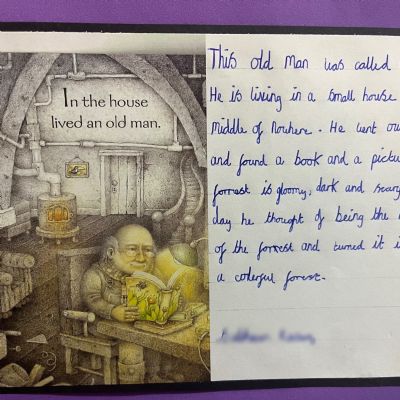 In the house
lived an old man.
This old man was called
He is living in a small house
middle of Nowhere. He went ou
and found a book and a pictu
forrest is gloomy, dark and scary
day he thought of being the
of the forrest and turned it i
a colerful forest.